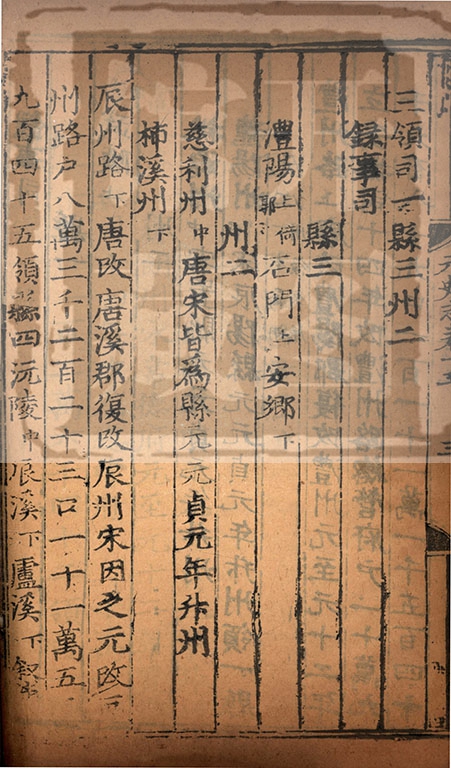 三領司一縣三州二
録事司
縣三
澧陽上倚郭石門上安鄉下
州二
慈利州中唐宋皆為縣元元貞元年升州
柿溪州下
辰州路下唐改唐溪郡復改辰州宋因之元改
州路户八萬三千二百二十三口一十一萬五
九百四十五領縣四沅陵中辰溪下盧溪下叙